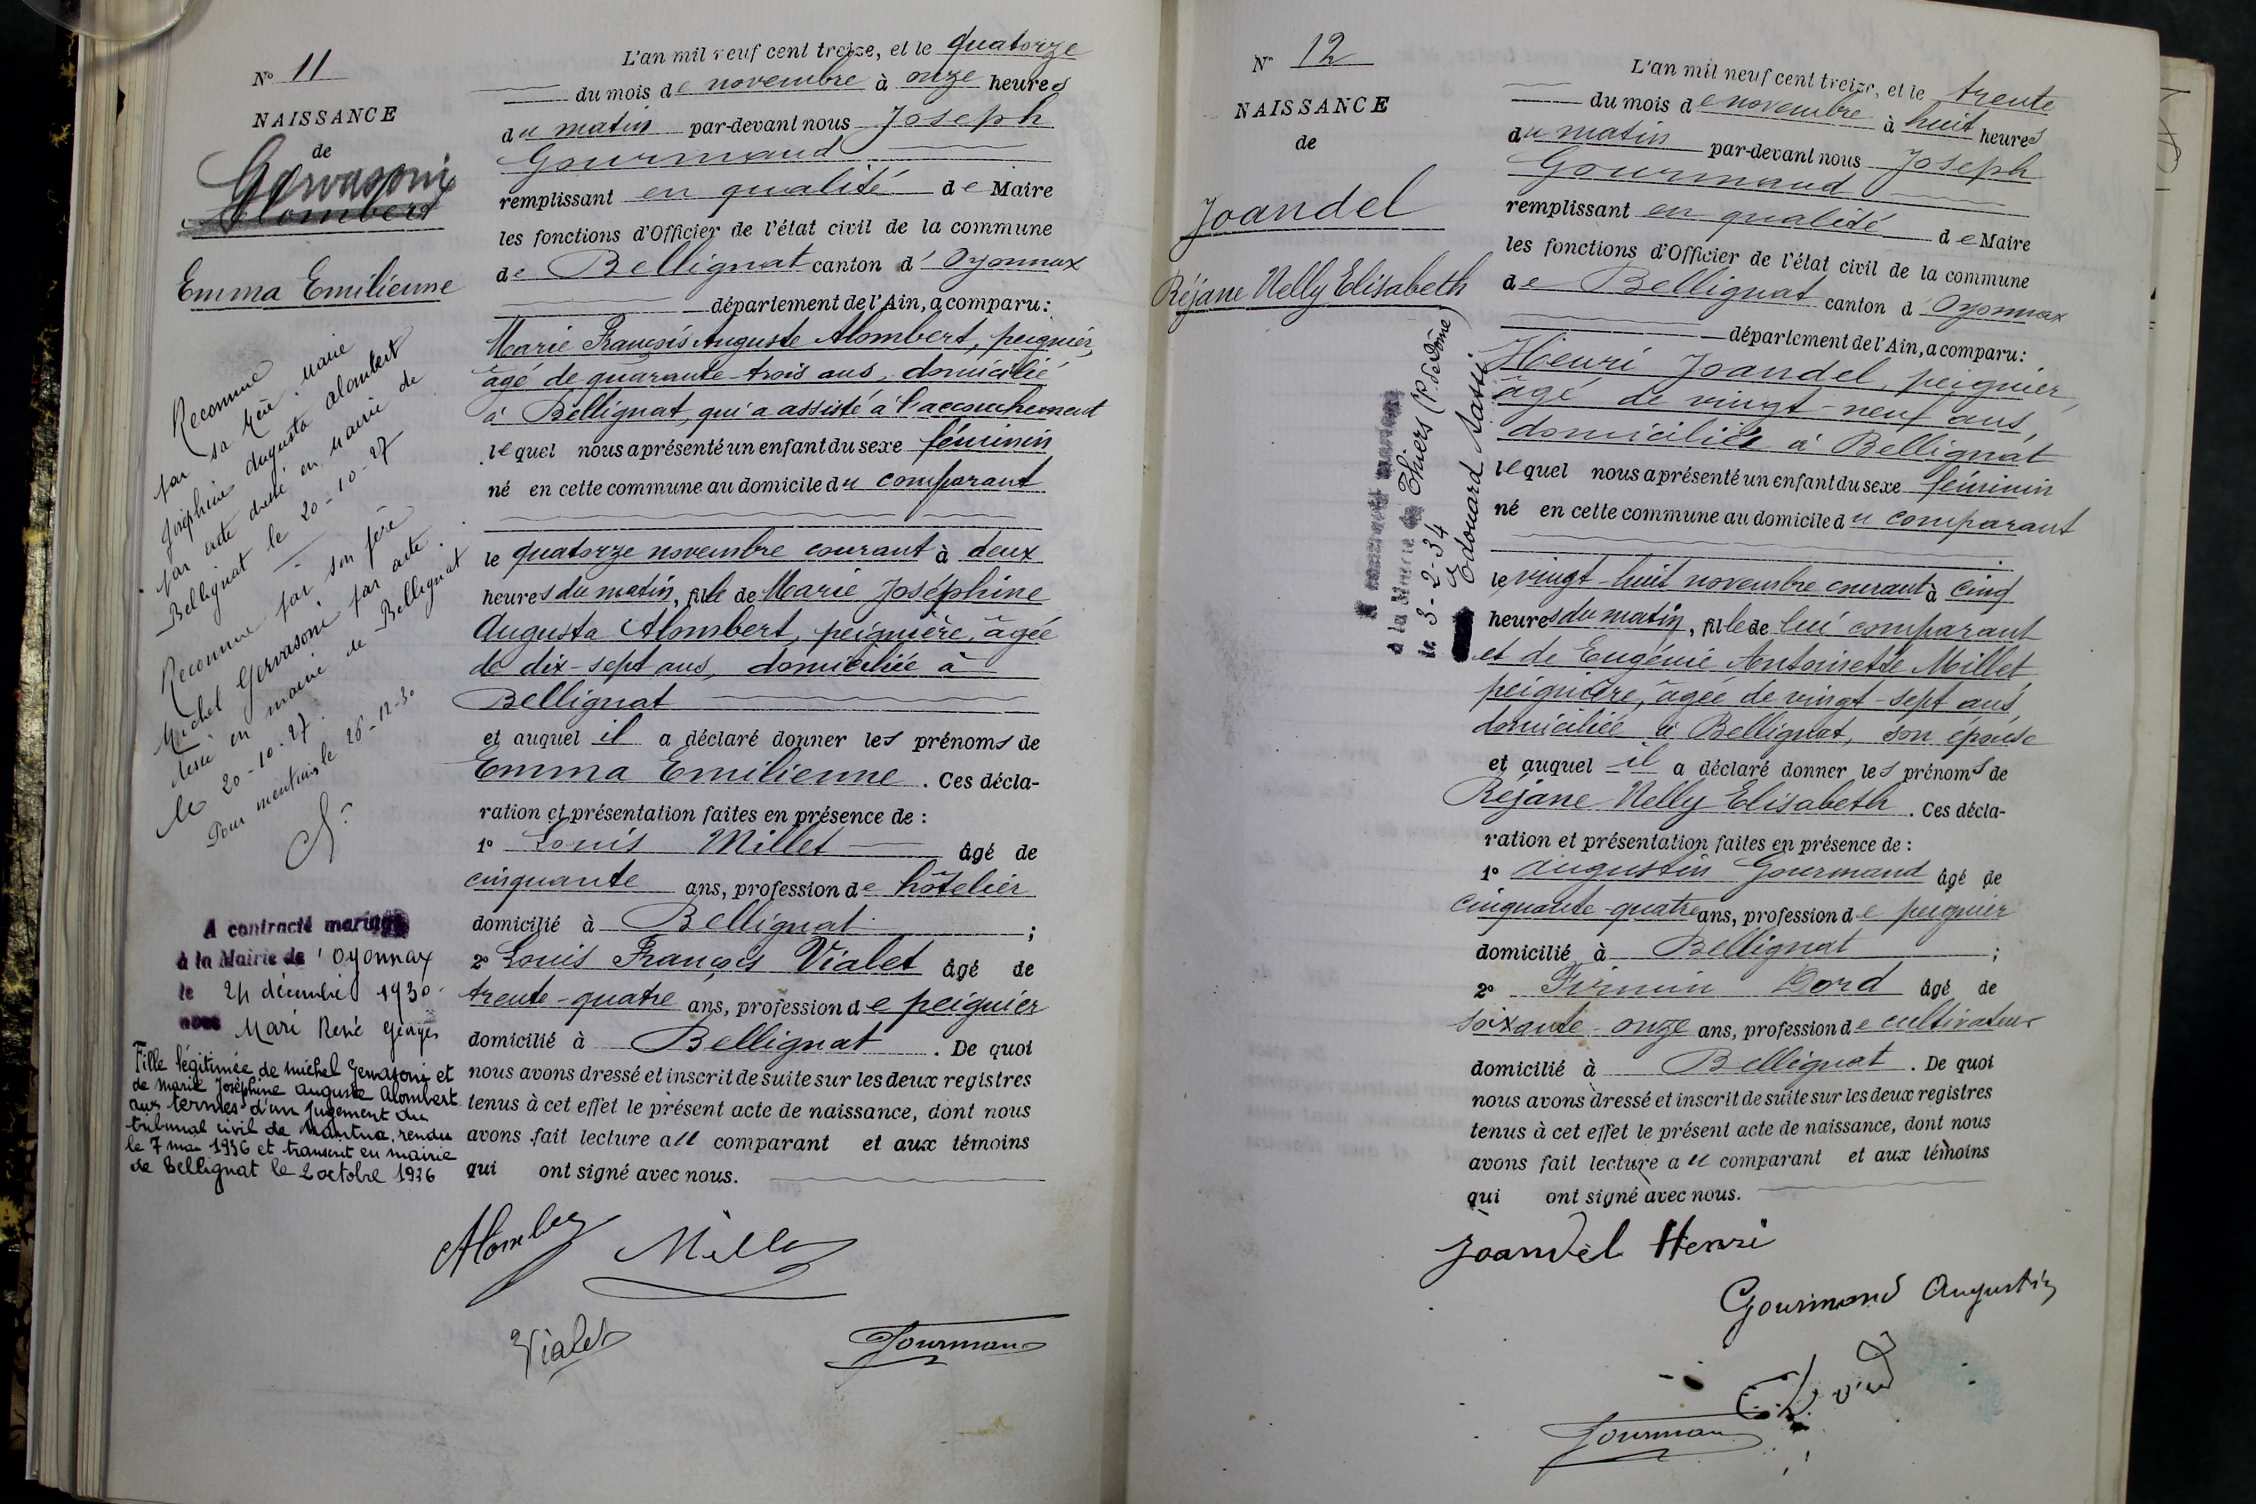 N° 11
NAISSANCE
de
Gervasoni
Alombert
Emma Emilienne
Reconnue
par sa mère Marie
Joséphine Augusta Alombert
par acte dressé en mairie de
Bellignat le 20-10-27
Reconnue par son père
Michel Gervasoni par acte
dressé en mairie de Bellignat
le 20-10-27.
Pour mention le 26-12-30
A contracté mariage
à la Mairie de 'Oyonnax
le 24 décembre 1930
avec Mari René Georges
Fille légitimée de Michel Gervasoni et
de Marie Joséphine Auguste Alombert
aux termes d'un jugement du
tribunal civil de Nantua, rendu
le 7 mai 1936 et transcrit en mairie
de Bellignat le 2 octobre 1936
L'an mil neuf cent treize, et le quatorze
du mois de novembre à onze heures
du matin par-devant nous Joseph
Gourmand
remplissant en qualité de Maire
les fonctions d'Officier de l'état civil de la commune
de Bellignat canton d' Oyonnax
département de l'Ain, a comparu :
Marie François Auguste Alombert, peignier,
âgé de quarante-trois ans, domicilié
à Bellignat, qui a assisté à l'accouchement
lequel nous a présenté un enfant du sexe féminin
né en cette commune au domicile du comparant
le quatorze novembre courant à deux
heures du matin, fille de Marie Joséphine
Augusta Alombert, peignière, âgée
de dix-sept ans, domiciliée à
Bellignat
et auquel il a déclaré donner les prénoms de
Emma Emilienne . Ces décla-
ration et présentation faites en présence de :
1° Louis Millet âgé de
cinquante ans, profession de hôtelier
domicilié à Bellignat ;
2° Louis François Vialet âgé de
trente-quatre ans, profession de peignier
domicilié à Bellignat . De quoi
nous avons dressé et inscrit de suite sur les deux registres
tenus à cet effet le présent acte de naissance, dont nous
avons fait lecture au comparant et aux témoins
qui ont signé avec nous.
Alombert Millet
Vialet Gourmand
N° 12
NAISSANCE
de
Joandel
Réjane Nelly Elisabeth
A contracté mariage
à la Mairie de Thiers (P. de Dôme)
le 3-2-34
Edouard
L'an mil neuf cent treize, et le trente
du mois de novembre à huit heures
du matin par-devant nous Joseph
Gourmand
remplissant en qualité de Maire
les fonctions d'Officier de l'état civil de la commune
de Bellignat canton d' Oyonnax
département de l'Ain, a comparu :
Henri Joandel, peignier,
âgé de vingt-neuf ans,
domicilié à Bellignat
lequel nous a présenté un enfant du sexe féminin
né en cette commune au domicile du comparant
le vingt-huit novembre courant à cinq
heures du matin, fille de lui comparant
et de Eugénie Antoinette Millet
peignière, âgée de vingt-sept ans
domiciliée à Bellignat, son épouse
et auquel il a déclaré donner les prénoms de
Réjane Nelly Elisabeth . Ces décla-
ration et présentation faites en présence de :
1° Augustin Gourmand âgé de
cinquante-quatre ans, profession de peignier
domicilié à Bellignat ;
2° Firmin Dord âgé de
soixante-onze ans, profession de cultivateur
domicilié à Bellignat . De quoi
nous avons dressé et inscrit de suite sur les deux registres
tenus à cet effet le présent acte de naissance, dont nous
avons fait lecture au comparant et aux témoins
qui ont signé avec nous.
Joandel Henri
Gourmand Augustin
Gourmand